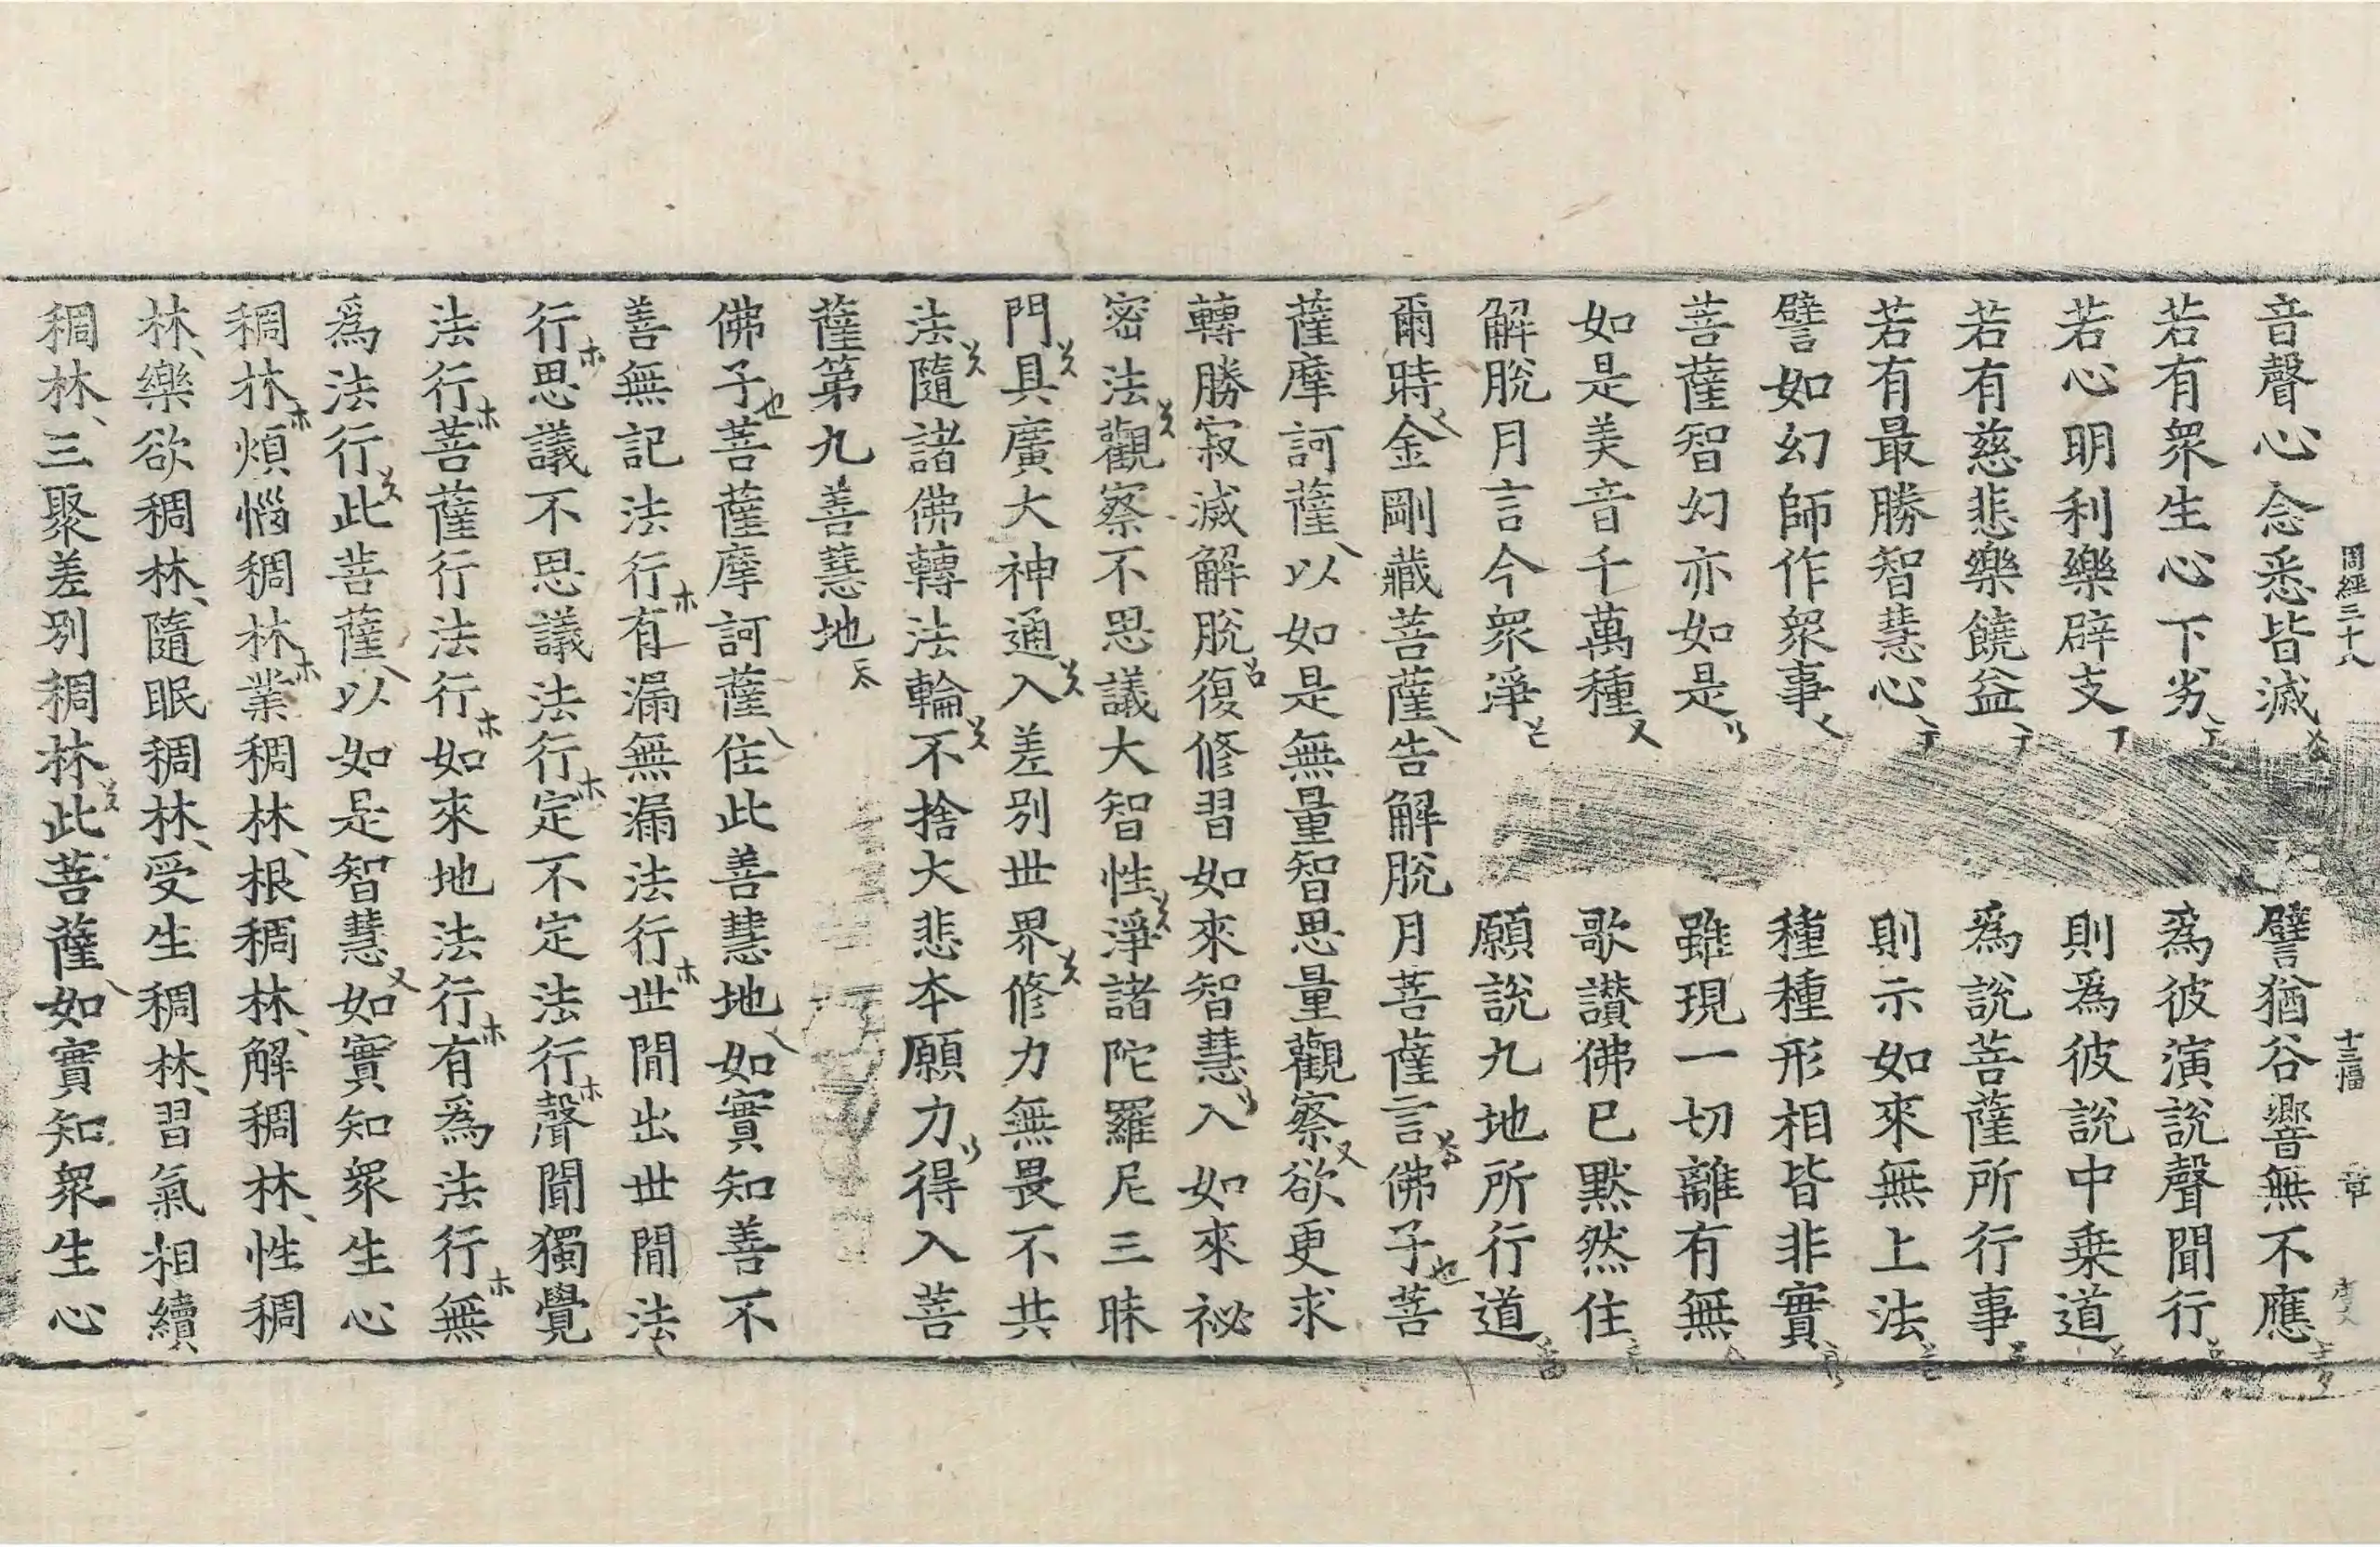 周經三十八 十三幅 章
音聲心念悉皆滅 譬猶谷響無不應
若有衆生心下劣 爲彼演說聲聞行
若心明利樂辟支 則爲彼說中乗道
若有慈悲樂饒益 爲說菩薩所行事
若有最勝智慧心 則示如來無上法
譬如幻師作衆事 種種形相皆非實
菩薩智幻亦如是 雖現一切離有無
如是美音千萬種 歌讃佛已黙然住
解脫月言今衆淨 願說九地所行道
爾時金剛藏菩薩告解脫月菩薩言佛子菩
薩摩訶薩以如是無量智思量觀察欲更求
轉勝寂滅解脫復修習如來智慧入如來祕
密法觀察不思議大智性淨諸陀羅尼三昧
門具廣大神通入差別世界修力無畏不共
法隨諸佛轉法輪不捨大悲本願力得入菩
薩第九善慧地
佛子菩薩摩訶薩住此善慧地如實知善不
善無記法行有漏無漏法行世閒出世閒法
行思議不思議法行定不定法行聲聞獨覺
法行菩薩行法行如來地法行有爲法行無
爲法行此菩薩以如是智慧如實知衆生心
稠林煩惱稠林業稠林根稠林解稠林性稠
林樂欲稠林隨眠稠林受生稠林習氣相續
稠林三聚差別稠林此菩薩如實知衆生心